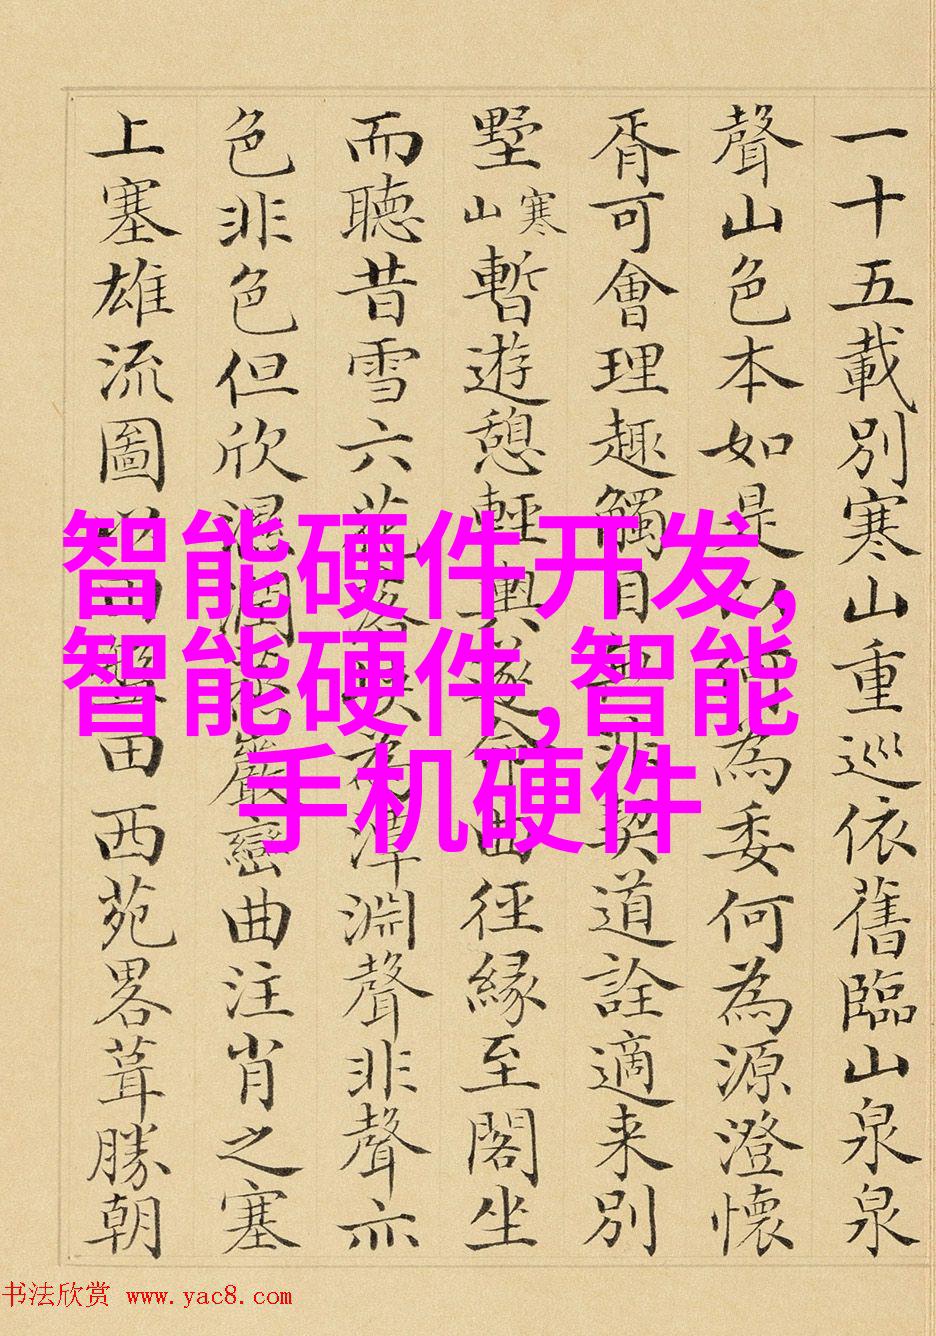 一十五載別寒山重巡依舊臨山泉泉
聲山色本如是以何為委何為源澄懷
胥可會理趣觸目無非契道詮適来別
墅寒山暫遊憩輕輿遂命曲徑緣至閣坐
而聽昔雪六花落為潭淵聲非聲亦
色非色但欣嚴巒曲注肖之塞
上塞雄流圖田西苑畧葺勝朝
智能硬件开发,
智能硬件,智能
手机硬件
书法欣赏 www.yac8.com